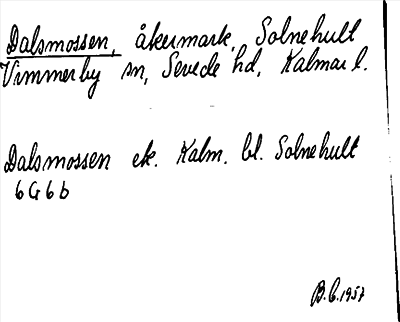 Dalsmossen, åkermark, Solnehult
Vimmerby sn, Sevede hd, Kalmar l.
Dalsmossen ek. Kalm. bl. Solnehult
6G6b
B.C. 1957